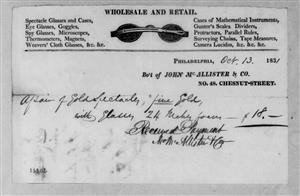 WHOLESALE AND RETAIL.
Spectacle Glasses and Cases,
Eye Glasses, Goggles,
Spy Glasses, Microscopes,
Thermometers, Magnets,
Weavers' Cloth Glasses, &c. &c.
Cases of Mathematical Instruments,
Gunter's Scales, Dividers,
Protractors, Parallel Rules,
Surveying Chains, Tape Measures,
Camera Lucidas, &c. &c. &c.
PHILADELPHIA, Oct. 13. 183
Bot of JOHN McALLISTER & CO.
NO. 48, CHESNUT-STREET.
A pair of Gold Spectacles, fine Gold,
with Glasses 24 Inches focus — $18.—
Received Payment
Jno McAllister & Co